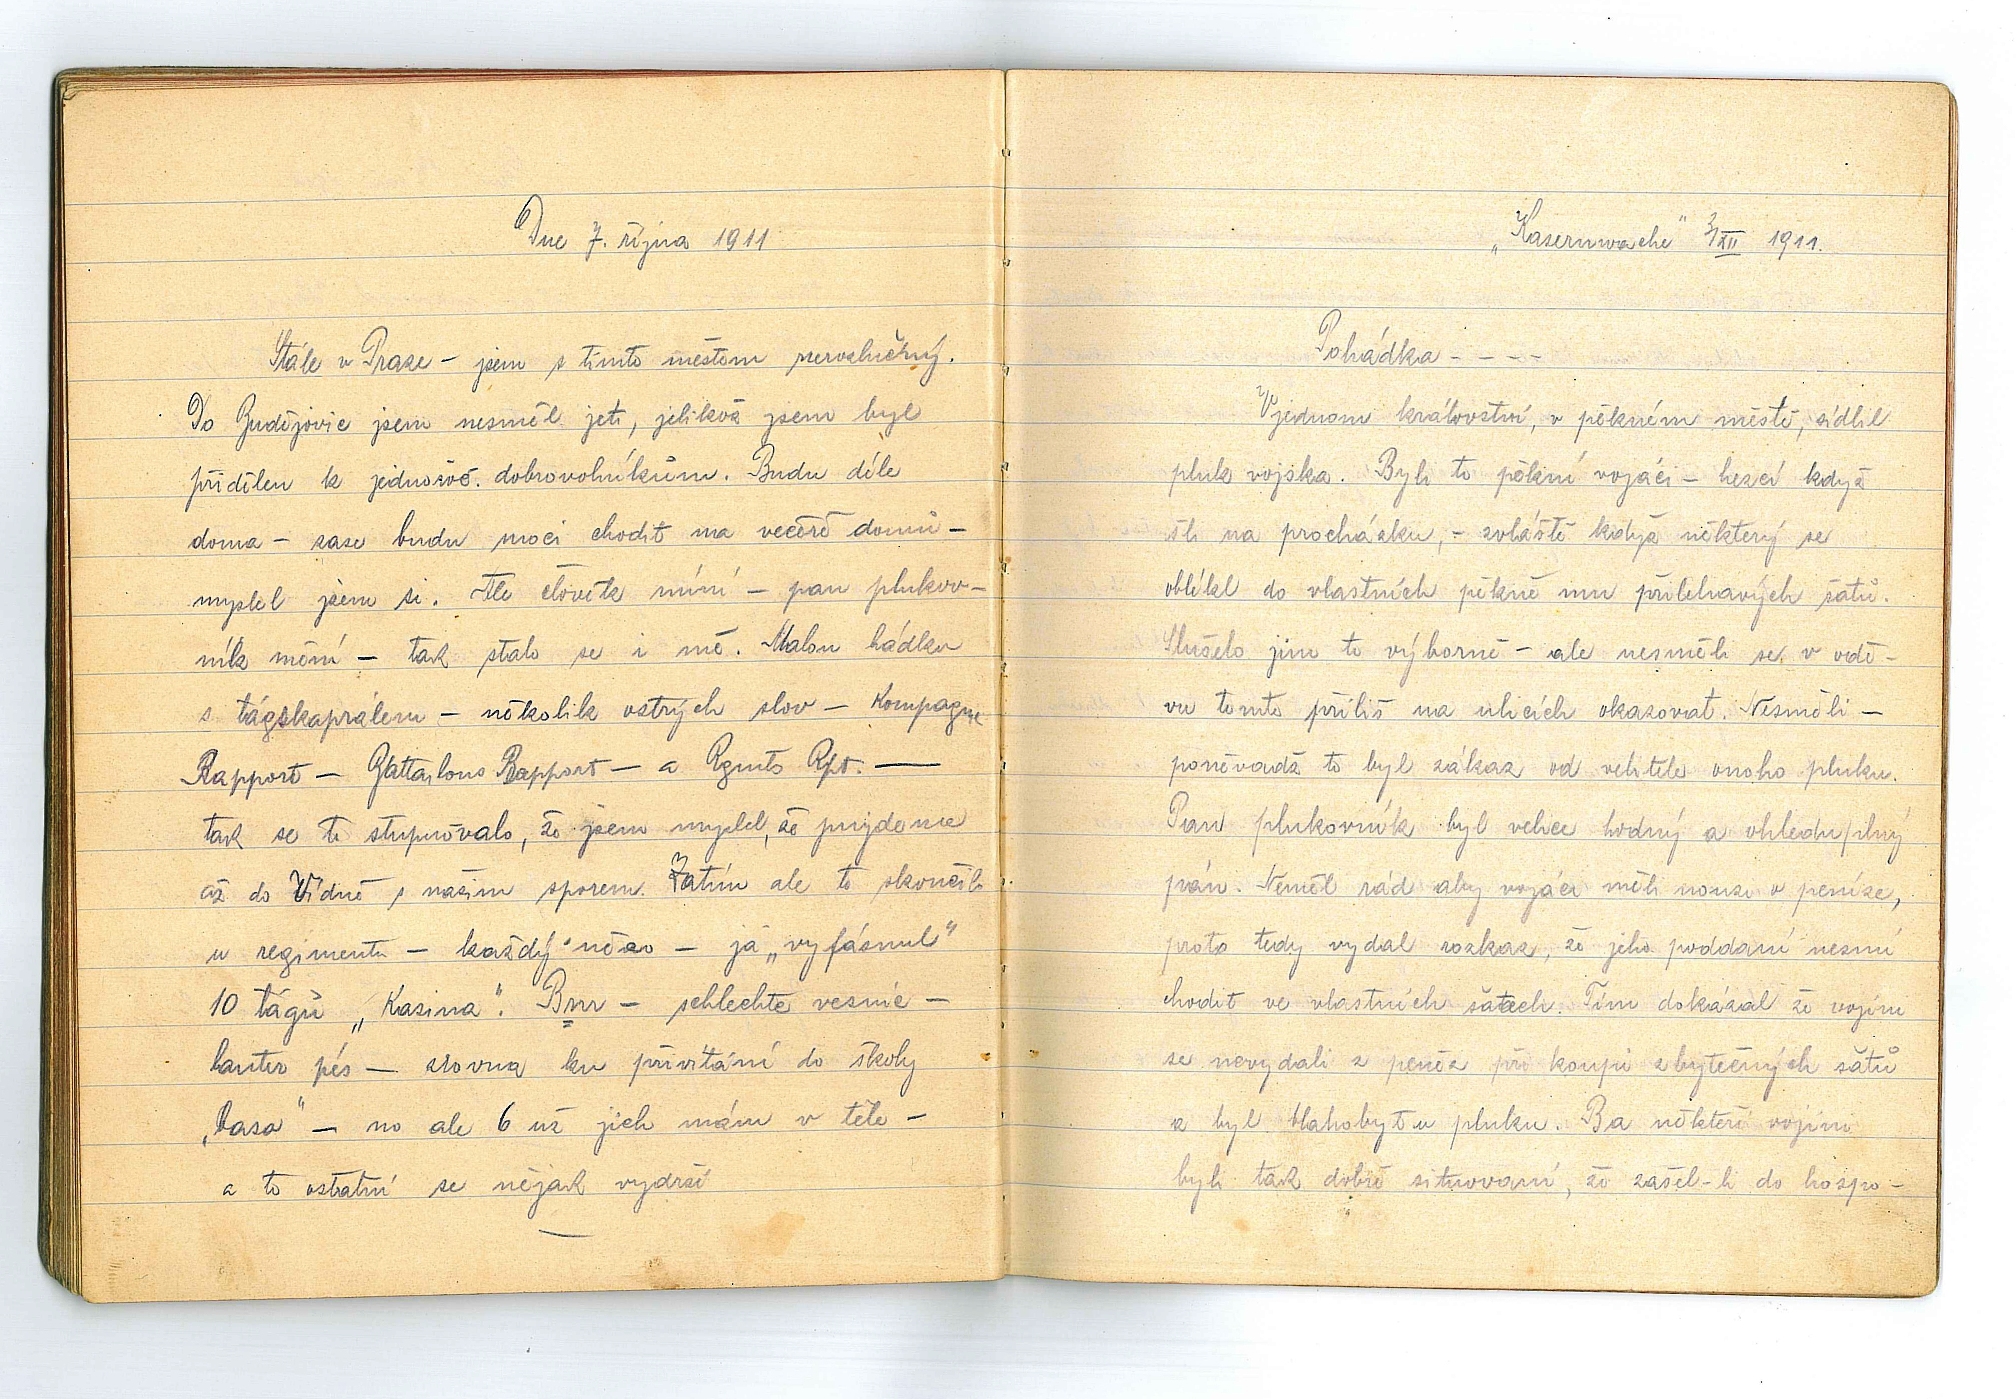 Dne 7. října 1911
Stále v Praze – jsem s tímto městem nerozlučný.
Do Budějovic jsem nesměl jeti, jelikož jsem byl
přidělen k jednoroč. dobrovolníkům. Budu déle
doma – zase budu moci chodit na večeře domů –
myslel jsem si. Ale člověk míní – pan plukov-
ník mění – tak stalo se i mě. Malou hádku
s tágskaprálem – několik ostrých slov – Kompagne
Rapport – Battailons Rapport – a Rgmts Rpt. —
tak se to stupňovalo, že jsem myslel, že pujdeme
až do Vídně s našim sporem. Zatím ale to skončilo
u regimentu – každý něco – já „vyfásnul“
10 tágů „Kasina“. Brrr – schlechte vesnic –
lauter pés – zrovna ku přivítání do školy
„basa“ – no ale 6 už jich mám v těle –
a to ostatní se nějak vydrží
„Kasernwache“ 3/XII 1911.
Pohádka - - - -
V jednom království, v pěkném městě, sídlil
pluk vojska. Byli to pěkní vojáci – hezcí když
šli na procházku, – zvláště když některý se
oblékl do vlastních pěkně mu přilehavých šatů.
Slušelo jim to výborně – ale nesměli se v odě-
vu tomto příliš na ulicích okazovat. Nesměli –
poněvadž to byl zákaz od velitele onoho pluku.
Pan plukovník byl velice hodný a ohleduplný
pán. Neměl rád aby vojáci měli nouzi o peníze,
proto tedy vydal rozkaz, že jeho poddaní nesmí
chodit ve vlastních šatech. Tím dokázal že vojíni
se nevydali z peněz při koupi zbytečných šatů
a byl blahobyt u pluku. Ba někteří vojíni
byli tak dobře situovaní, že zašel-li do hospo-